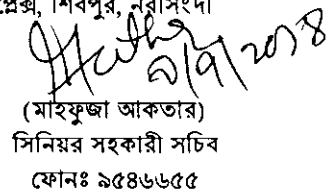 প্লেক্স, শিবপুর, নরসিংদী
৯/৭/২০১৪
(মাহফুজা আকতার)
সিনিয়র সহকারী সচিব
ফোনঃ ৯৫৪৬৬৫৫